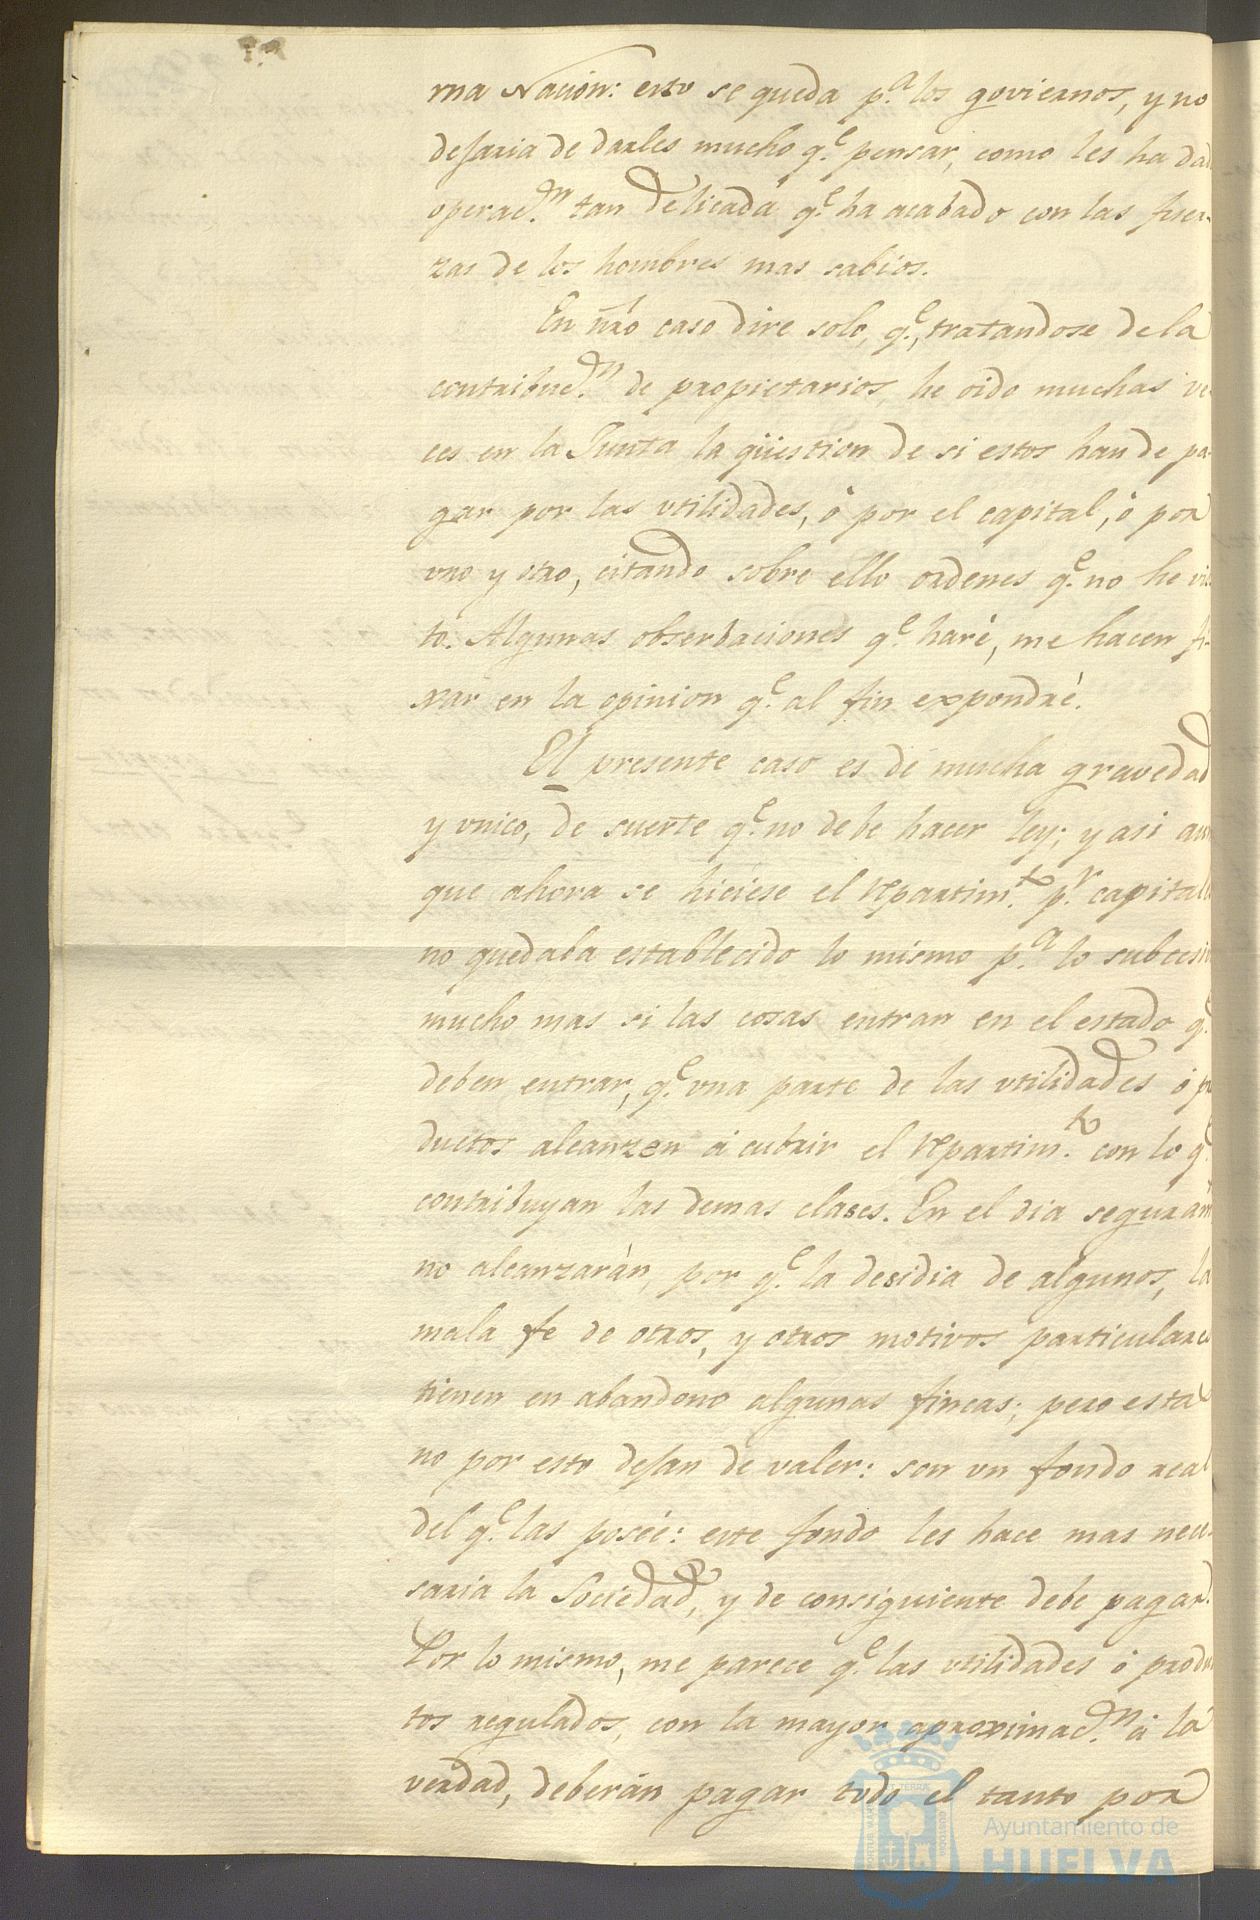 ma Nacion: esto se queda p.ª los goviernos, y no
dejaria de darles mucho q.e pensar, como les ha dad
operac.on tan delicada q.e ha acabado con las fuer-
zas de los hombres mas sabios.
En ntro caso dire solo, q.e, tratandose de la
contribuc.on de propietarios, he oido muchas ve-
ces en la Junta la qüestion de si estos han de pa-
gar por las vtilidades, ó por el capital, ó por
vno y otro, citando sobre ello ordenes q.e no he vis
to. Algunas obserbaciones q.e haré, me hacen fi-
xar en la opinion q.e al fin expondré.
El presente caso es de mucha gravedad
y vnico, de suerte q.e no debe hacer ley; y asi aun
que ahora se hiciese el repartim.to p.r capitale
no quedaba establecido lo mismo p.ª lo subcesiv
mucho mas si las cosas entran en el estado q.e
deben entrar, q.e vna parte de las vtilidades ó pr
ductos alcanzen á cubrir el repartim.to con lo q.e
contribuyan las demas clases. En el dia seguram
no alcanzarán, por q.e la desidia de algunos, la
mala fe de otros, y otros motivos particulares
tienen en abandono algunas fincas; pero estas
no por esto dejan de valer: son vn fondo real
del q.e las poseé: este fondo les hace mas nece-
saria la Sociedad, y de consiguiente debe pagar.
Por lo mismo, me parece q.e las vtilidades ó produ
tos regulados, con la mayor aproximac.on á la
verdad, deberán pagar todo el tanto por
Ayuntamiento de
HUELVA